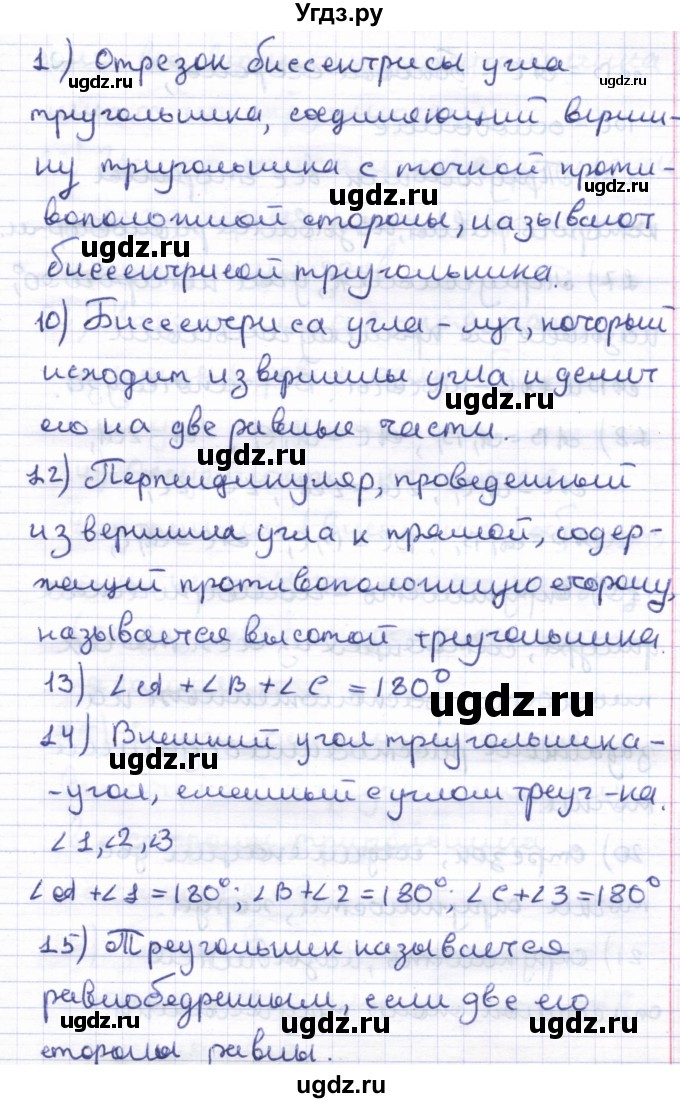 Угдз.ру
1) Отрезок биссектрисы угла
треугольника, соединяющий верши-
ну треугольника с точкой проти-
воположной стороны, называют
биссектрисой треугольника.
10) Биссектриса угла - луч, который
исходит из вершины угла и делит
его на две равные части.
12) Перпендикуляр, проведенный
из вершина угла к прямой, содер-
жащий противоположную сторону,
называется высотой треугольника.
13) ∠A + ∠B + ∠C = 180°
14) Внешний угол треугольника -
- угол, смежный с углом треуг-ка.
∠1, ∠2, ∠3
∠A + ∠1 = 180°; ∠B + ∠2 = 180°; ∠C + ∠3 = 180°
15) Треугольник называется
равнобедренным, если две его
стороны равны.
ugdz.ru
ugdz.ru
ugdz.ru
ugdz.ru
ugdz.ru
ugdz.ru
ugdz.ru
ugdz.ru
ugdz.ru
ugdz.ru
ugdz.ru
ugdz.ru